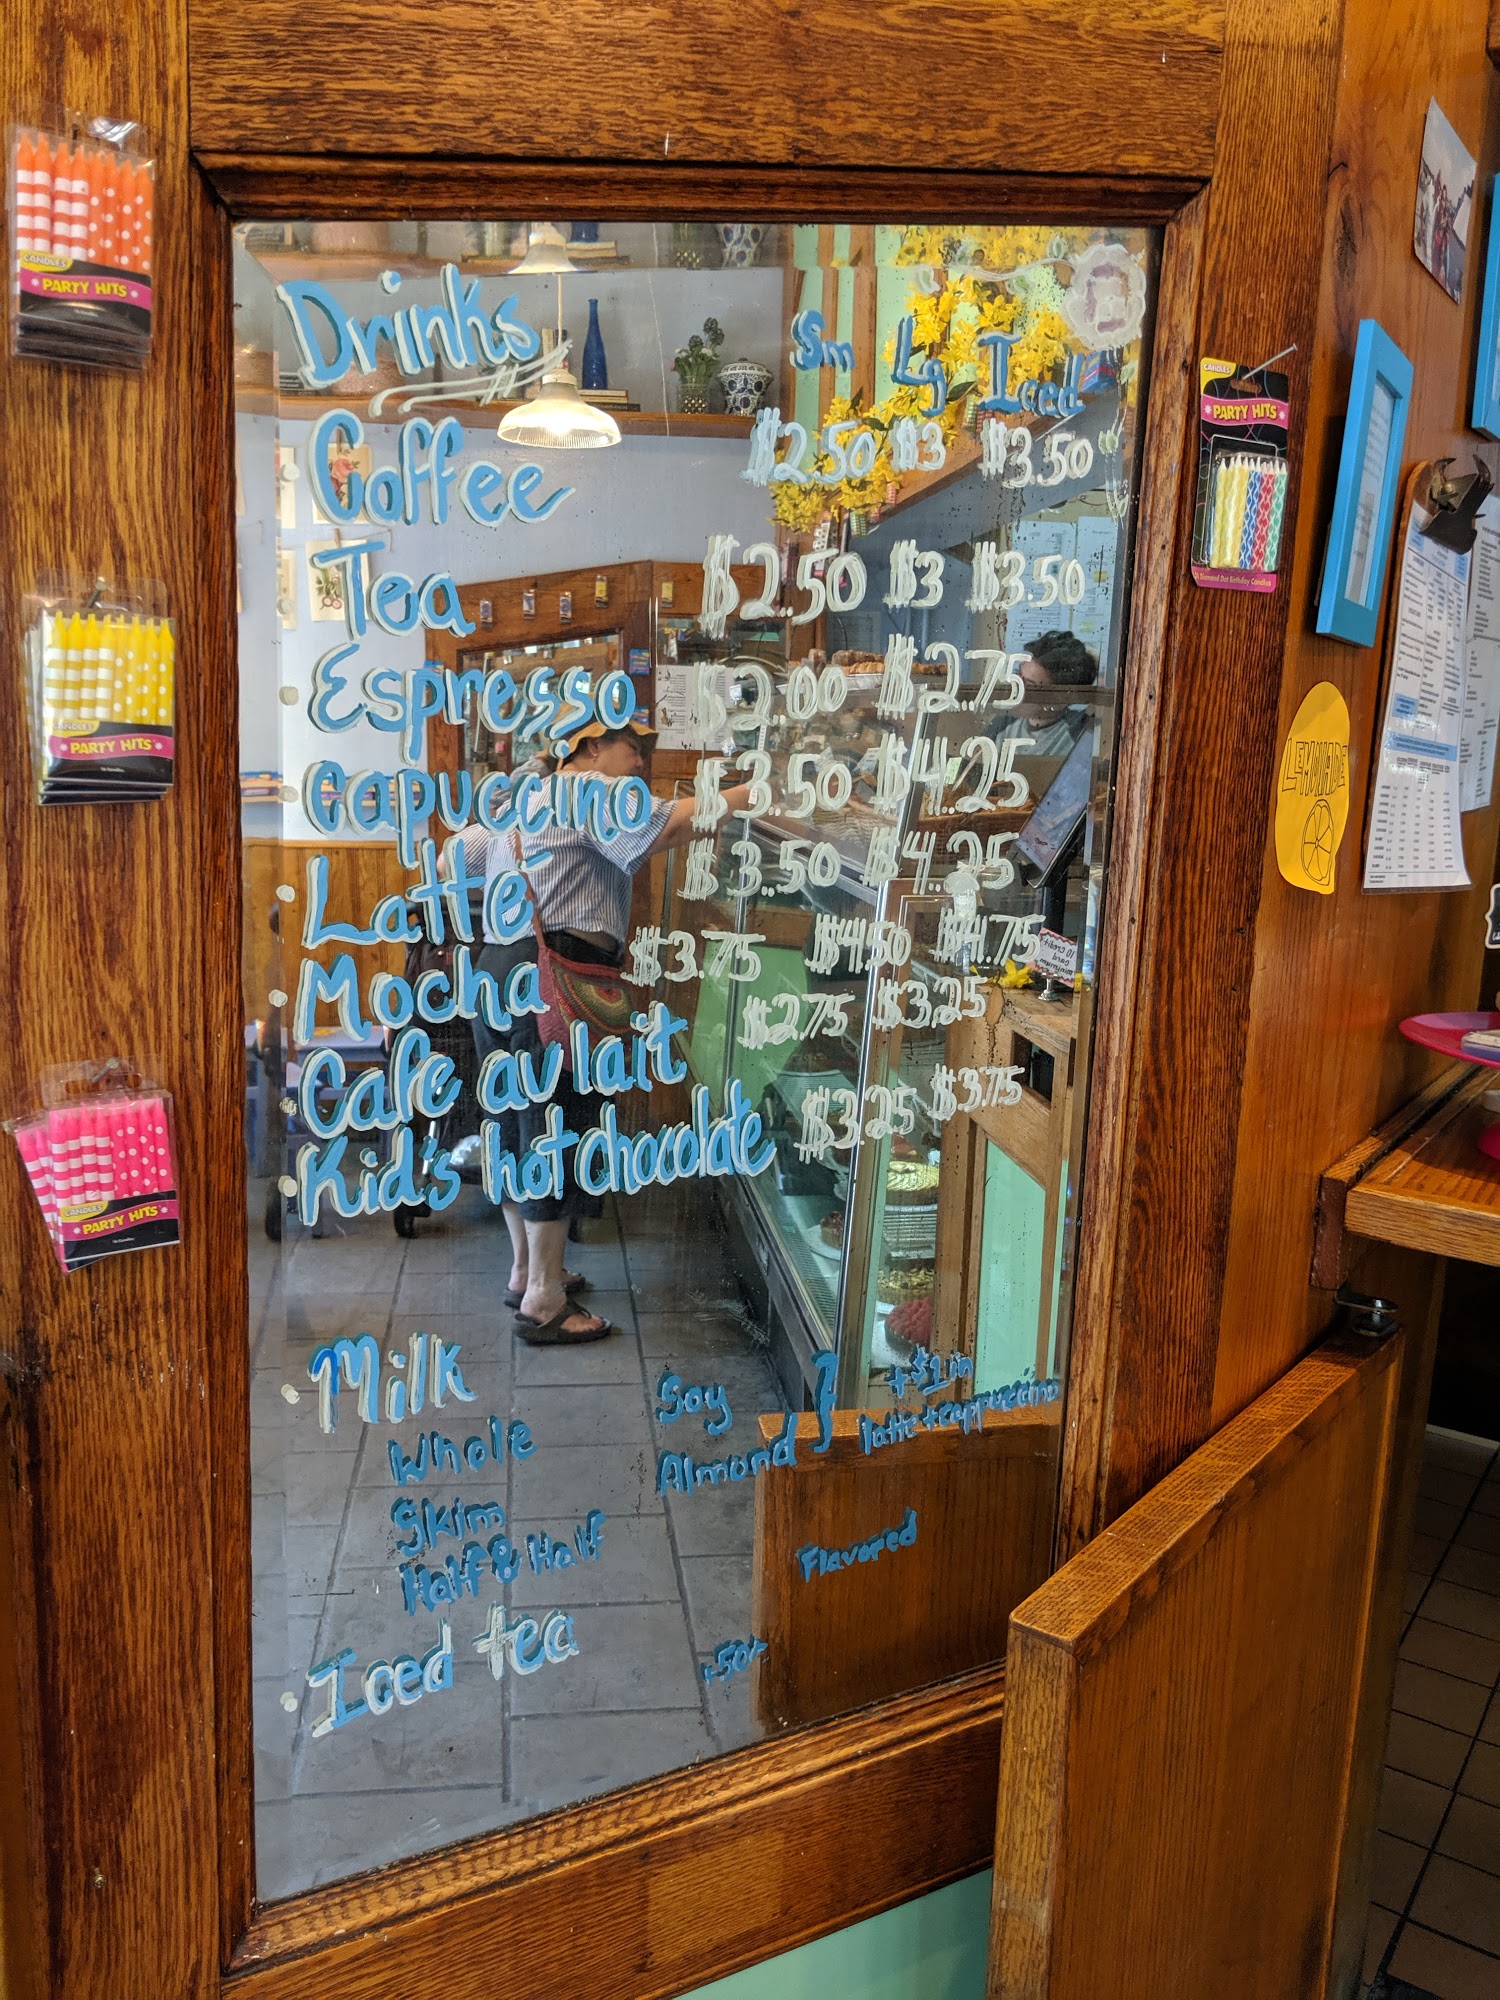 Drinks Sm Lg Iced
Coffee $2.50 $3 $3.50
Tea $2.50 $3 $3.50
Espresso $2.00 $2.75
Cappuccino $3.50 $4.25
Latté $3.50 $4.25
Mocha $3.75 $4.50 $4.75
Cafe au lait $2.75 $3.25
Kid's hot chocolate $3.25 $3.75
Milk
Whole
Skim
Half & Half
Soy
Almond
+$1 in
latte + cappuccino
Flavored
Iced tea
CANDLES
PARTY HITS
CANDLES
PARTY HITS
CANDLES
PARTY HITS
CANDLES
PARTY HITS
24 Diamond Dot Birthday Candles
LEMONADE
10 Credit
card
minimum